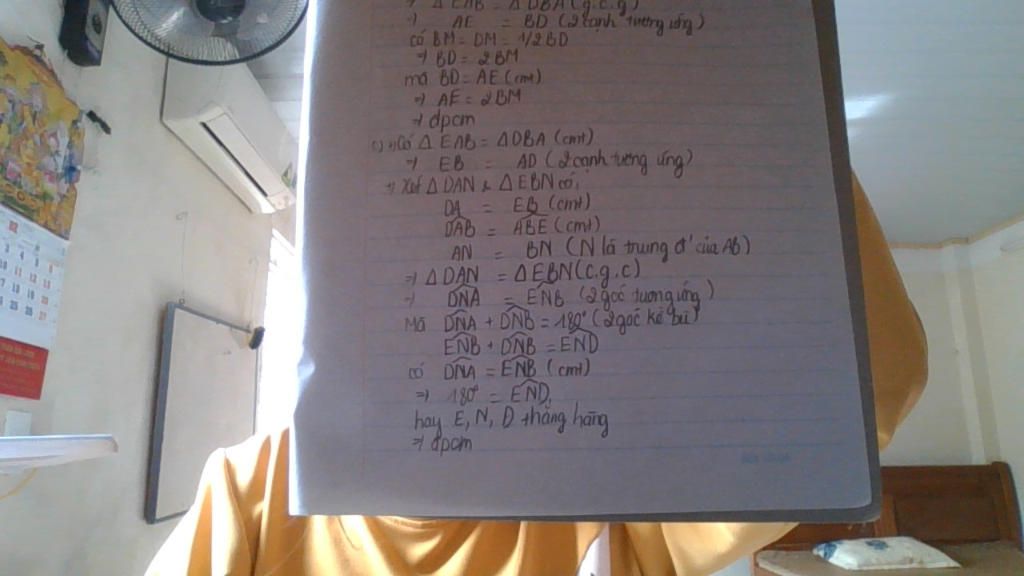 ⇒ Δ EAB = Δ DBA (g.c.g)
⇒ AE = BD (2 cạnh tương ứng)
có BM = DM = 1/2 BD
⇒ BD = 2 BM
mà BD = AE (cmt)
⇒ AE = 2 BM
⇒ đpcm
c) +) Có Δ EAB = Δ DBA (cmt)
⇒ EB = AD (2 cạnh tương ứng)
+) Xét Δ DAN & Δ EBN có,
DA = EB (cmt)
DAB = ABE (cmt)
AN = BN (N là trung đ' của AB)
⇒ Δ DAN = Δ EBN (c.g.c)
⇒ DNA = ENB (2 góc tương ứng)
Mà DNA + DNB = 180° (2 góc kề bù)
ENB + DNB = END
có DNA = ENB (cmt)
⇒ 180° = END,
hay E, N, D thẳng hàng
⇒ đpcm